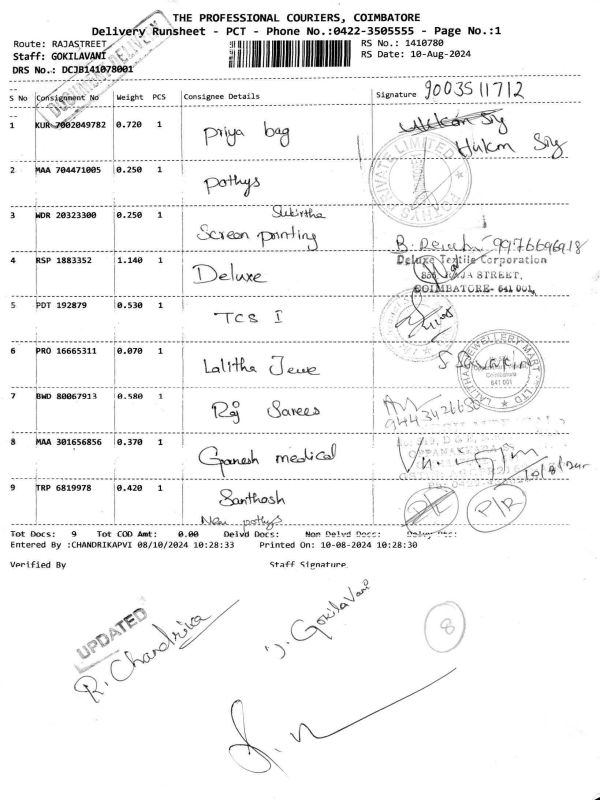 THE PROFESSIONAL COURIERS, COIMBATORE
Delivery Runsheet - PCT - Phone No.:0422-3505555 - Page No.:1
Route: RAJASTREET
RS No.: 1410780
Staff: GOKILAVANI
RS Date: 10-Aug-2024
DRS No.: DCJB141078001
S No Consignment No Weight PCS Consignee Details Signature 9003511712
1 KUR 7002049782 0.720 1 Priya bag Hukm Sig
2 MAA 704471005 0.250 1 Pothys
PRIVATE LIMITED
POTHYS
3 WDR 20323300 0.250 1 Sukirtha
Screen printing
B. 9976696918
4 RSP 1883352 1.140 1 Deluxe
Deluxe Textile Corporation
RAJA STREET,
COIMBATORE- 641 001.
5 PDT 192879 0.530 1 TCS I
6 PRO 16665311 0.070 1 Lalitha Jewe
LALITHAA JEWELLERY MART LTD
Coimbatore
641 001
7 BWD 80067913 0.580 1 Raj Sarees
8 MAA 301656856 0.370 1 Ganesh medical
10/8/24
9 TRP 6819978 0.420 1 Santhosh
New pothys
D/L P/R
Tot Docs: 9 Tot COD Amt: 0.00 Delvd Docs: Non Delvd Docs:
Entered By :CHANDRIKAPVI 08/10/2024 10:28:33 Printed On: 10-08-2024 10:28:30
Verified By Staff Signature
UPDATED
R. Chandrika
J. Gokilavani
8